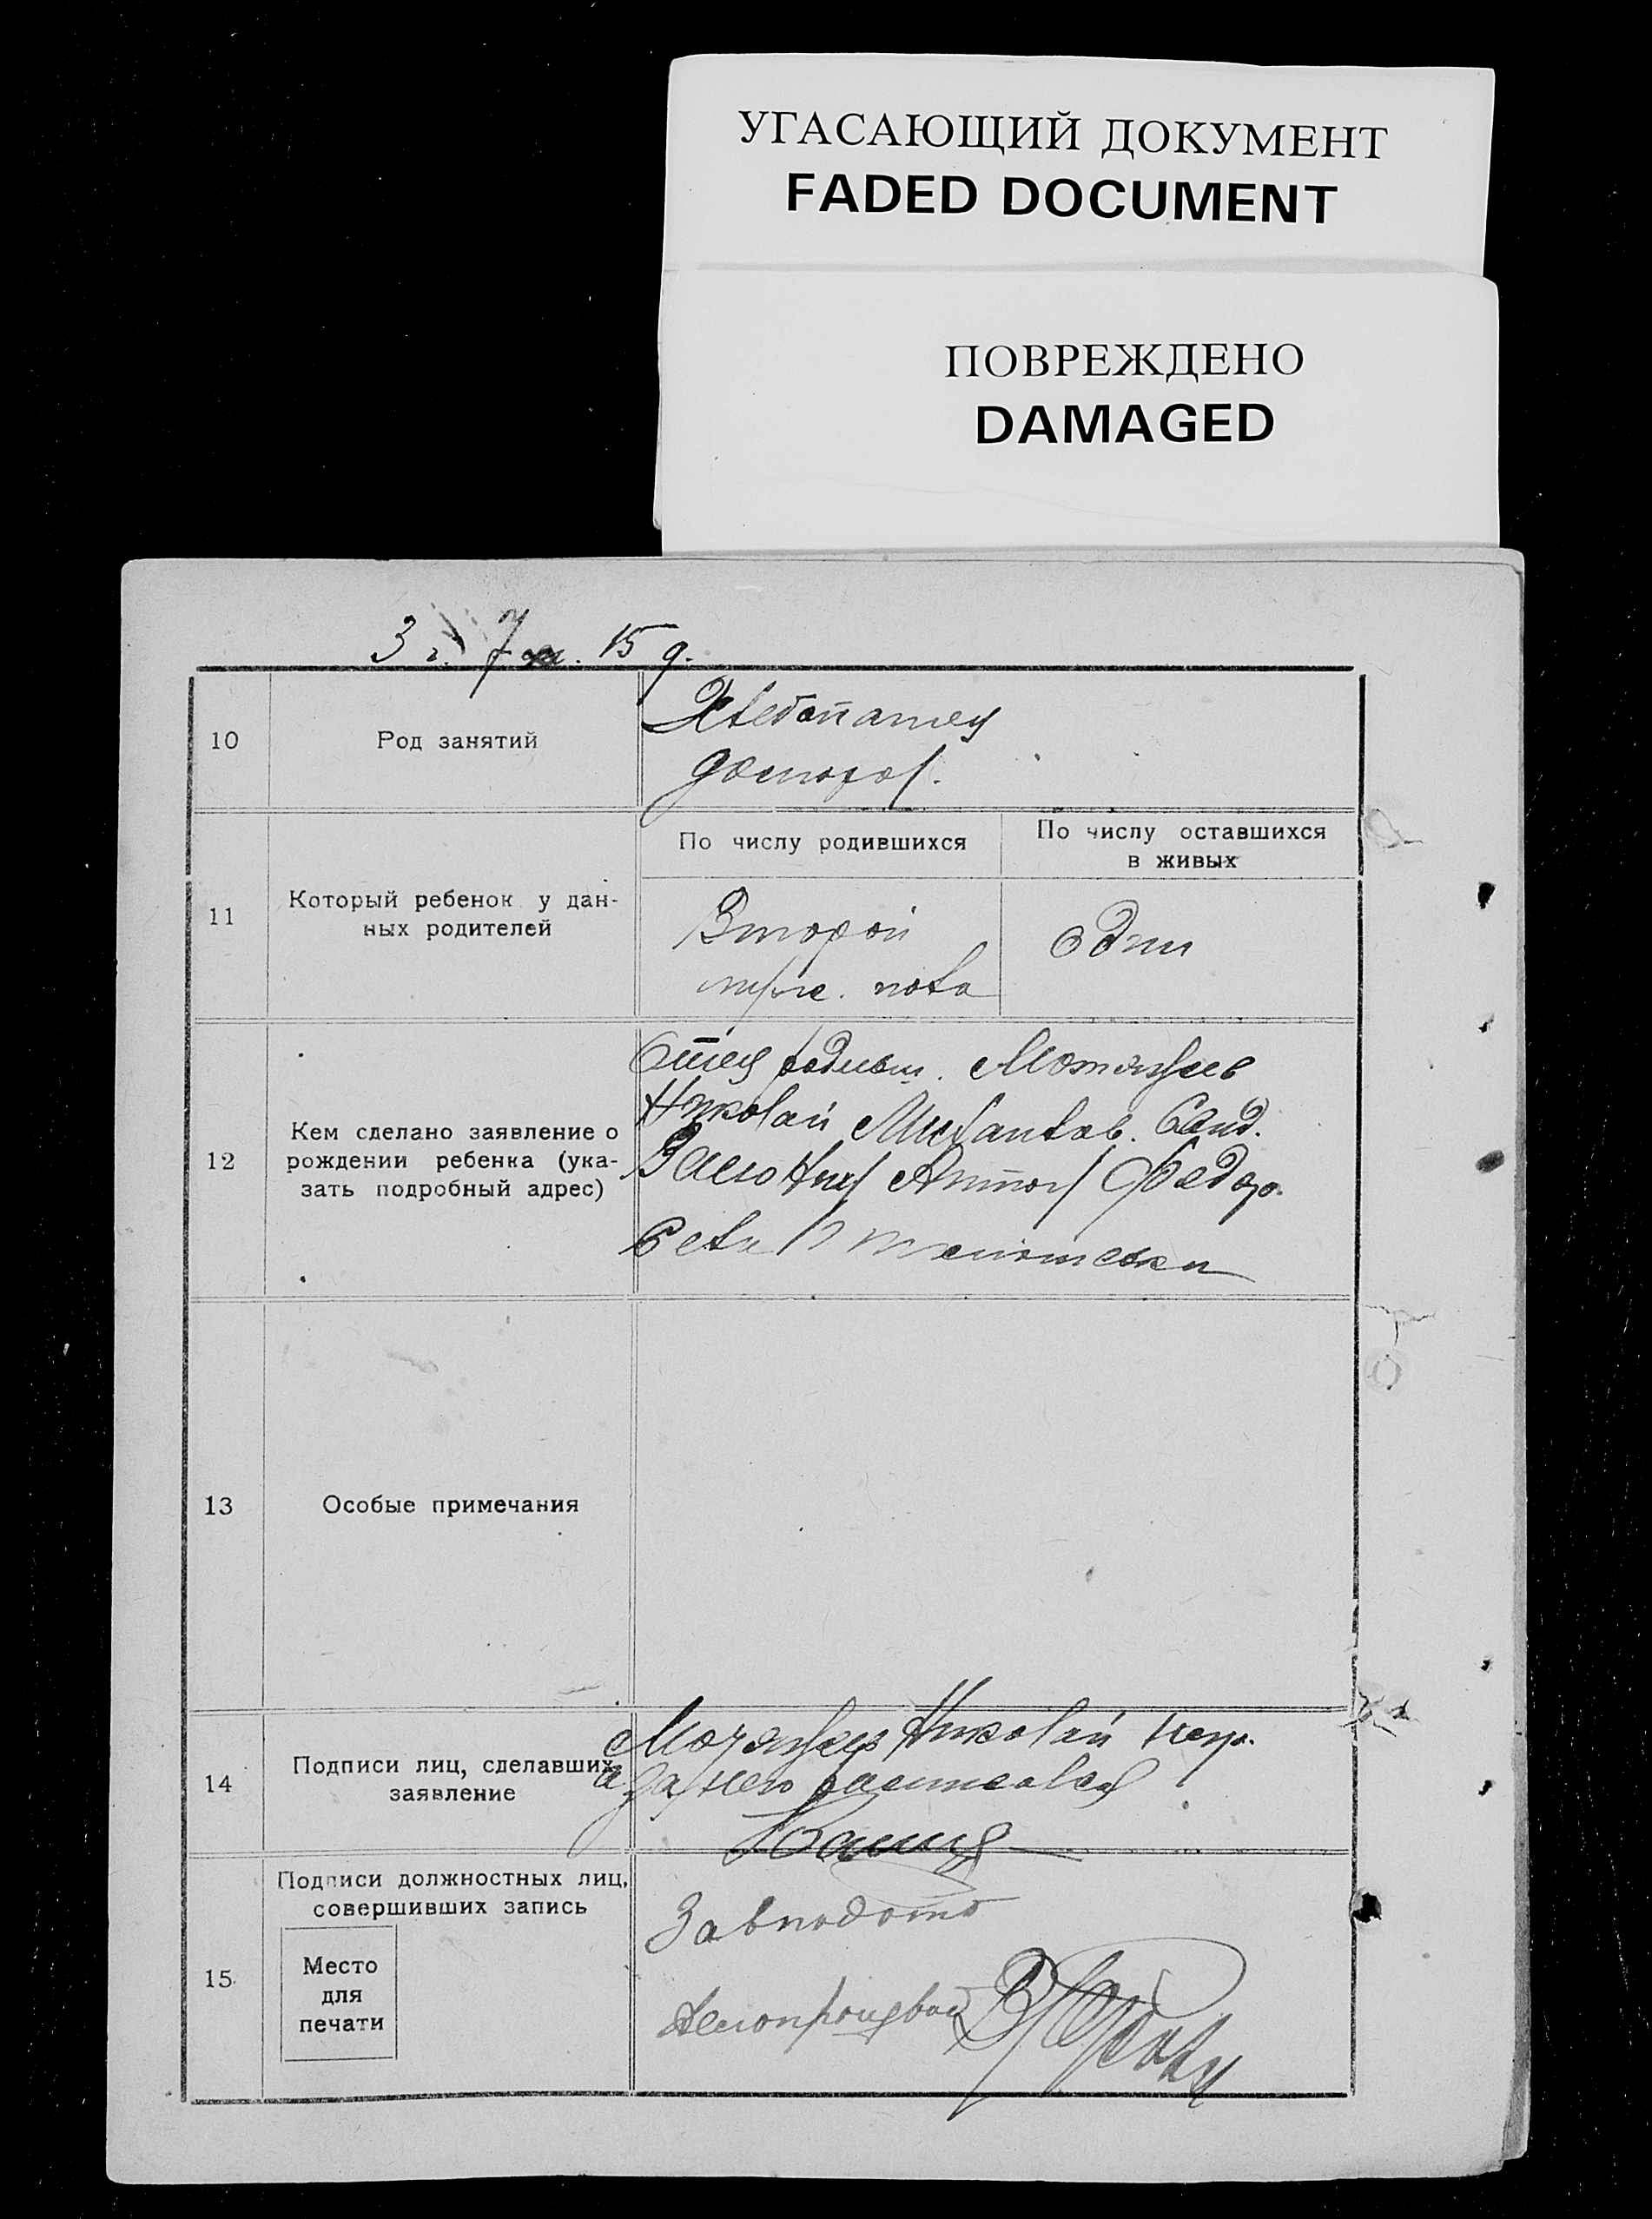 УГАСАЮЩИЙ ДОКУМЕНТ
FADED DOCUMENT
ПОВРЕЖДЕНО
DAMAGED
3 г. 7 м. 15 д.
10
Род занятий
Хлебопашец
11
Который ребенок у дан-
ных родителей
По числу родившихся
По числу оставшихся
в живых
Второй
пола
один
12
Кем сделано заявление о
рождении ребенка (ука-
зать подробный адрес)
Отец
Николай
Села
13
Особые примечания
14
Подписи лиц, сделавших
заявление
Николай негр.
а за него расписался
15
Подписи должностных лиц,
совершивших запись
Место
для
печати
Завподотд
Делопроизвод